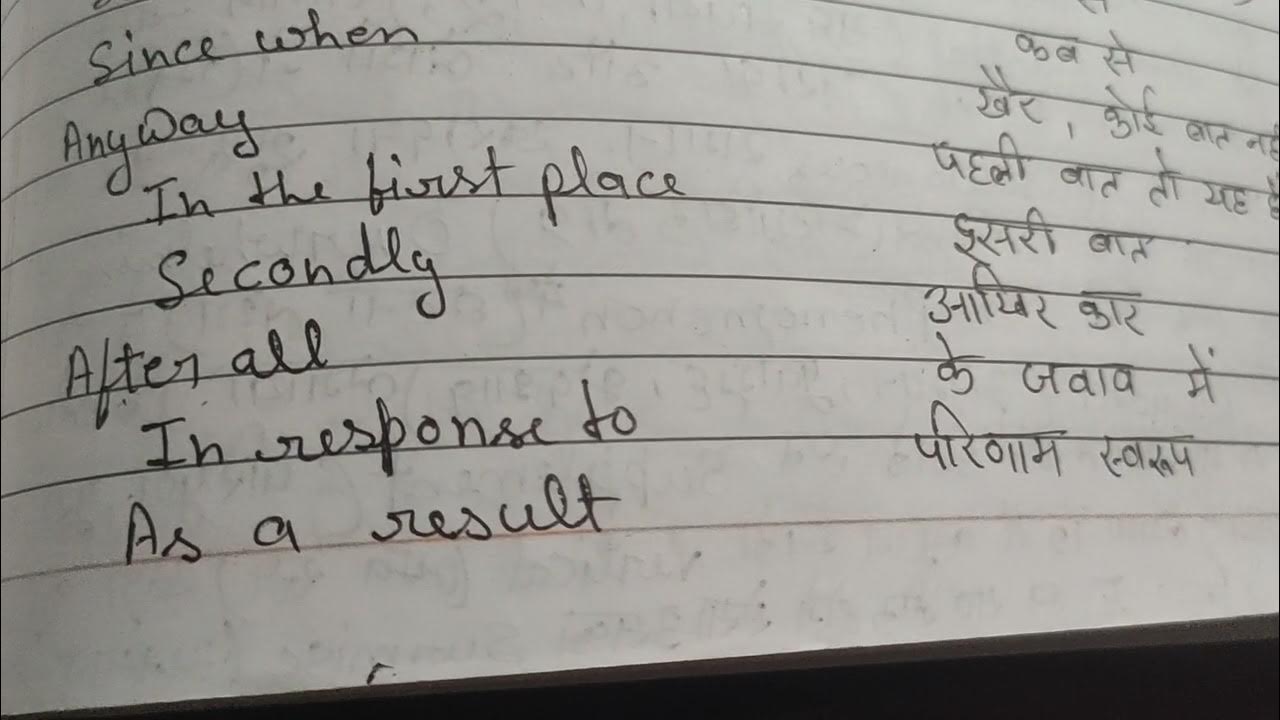 Since when कब से
Anyway खैर, कोई बात
In the first place पहली बात तो यह
Secondly दूसरी बात
After all आखिर कार
In response to के जवाव में
As a result परिणाम स्वरूप